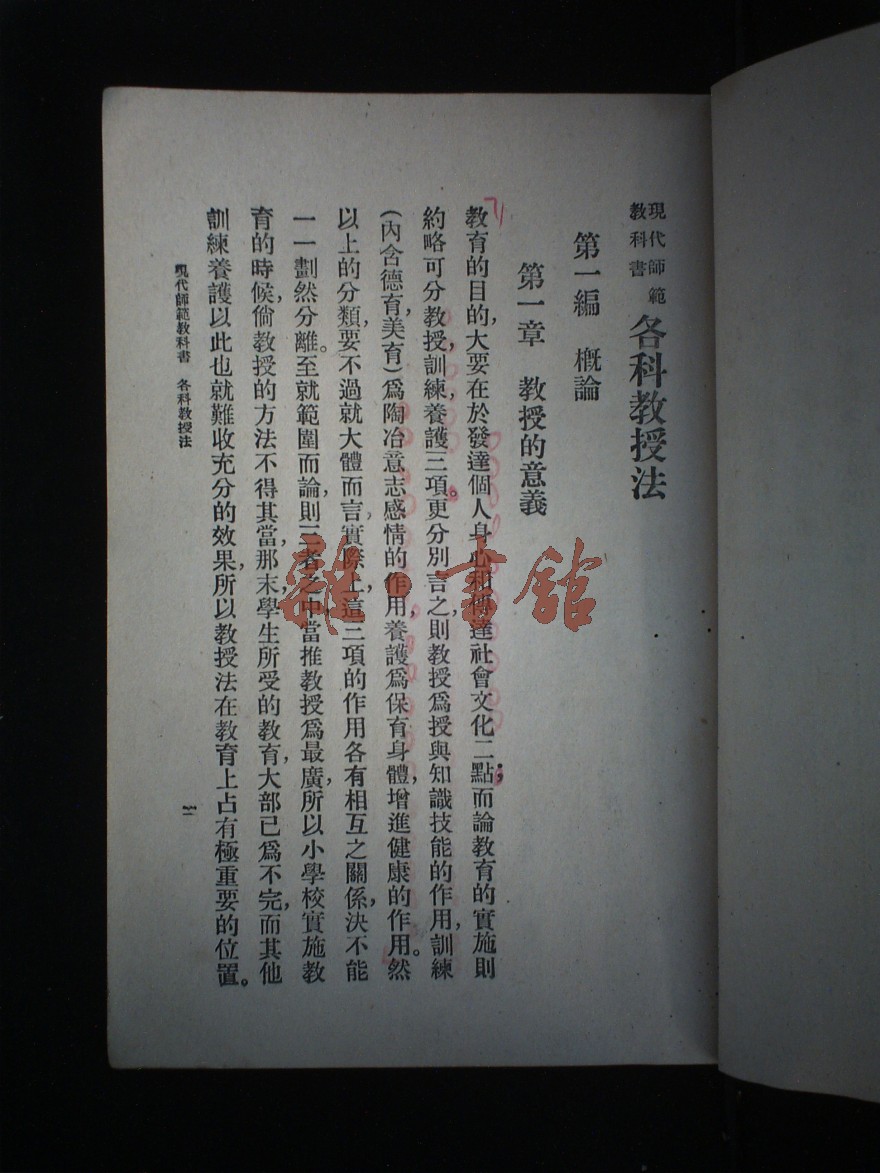 現代師範
教科書
各科教授法
第一編 概論
第一章 教授的意義
教育的目的,大要在於發達個人身心和傳達社會文化二點;而論教育的實施則
約略可分教授,訓練,養護三項。更分別言之,則教授爲授與知識技能的作用,訓練
(內含德育,美育)爲陶冶意志感情的作用,養護爲保育身體,增進健康的作用。然
以上的分類,要不過就大體而言,實際上,這三項的作用各有相互之關係,決不能
一一劃然分離。至就範圍而論,則三者之中,當推教授爲最廣,所以小學校實施教
育的時候,倘教授的方法不得其當,那末,學生所受的教育,大部已爲不完,而其他
訓練養護以此也就難收充分的效果,所以教授法在教育上占有極重要的位置。
現代師範教科書 各科教授法
一
雜·書館